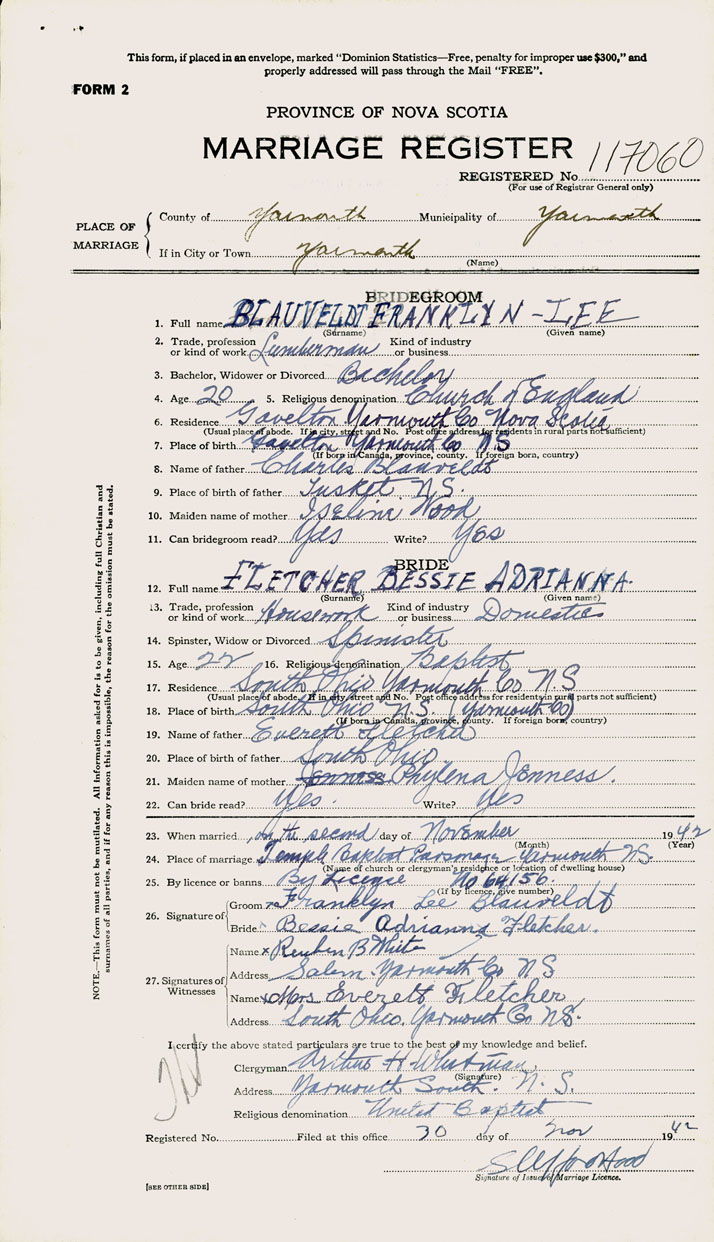 This form, if placed in an envelope, marked "Dominion Statistics—Free, penalty for improper use $300," and
properly addressed will pass through the Mail "FREE".
FORM 2
PROVINCE OF NOVA SCOTIA
MARRIAGE REGISTER 117060
REGISTERED No.
(For use of Registrar General only)
PLACE OF MARRIAGE
County of Yarmouth Municipality of Yarmouth
If in City or Town Yarmouth
(Name)
BRIDEGROOM
1. Full name BLAUVELDT FRANKLYN - LEE
(Surname) (Given name)
2. Trade, profession or kind of work Lumberman Kind of industry or business
3. Bachelor, Widower or Divorced Bachelor
4. Age 20 5. Religious denomination Church of England
6. Residence Gavelton Yarmouth Co Nova Scotia
(Usual place of abode. If in city, street and No. Post office address for residents in rural parts not sufficient)
7. Place of birth Gavelton Yarmouth Co N S
(If born in Canada, province, county. If foreign born, country)
8. Name of father Charles Blauveldt
9. Place of birth of father Tusket N.S.
10. Maiden name of mother Iseline Wood
11. Can bridegroom read? Yes Write? Yes
BRIDE
12. Full name FLETCHER BESSIE ADRIANNA.
(Surname) (Given name)
13. Trade, profession or kind of work Housework Kind of industry or business Domestic
14. Spinster, Widow or Divorced Spinister
15. Age 22 16. Religious denomination Baptist
17. Residence South Ohio Yarmouth Co N S
(Usual place of abode. If in city, street and No. Post office address for residents in rural parts not sufficient)
18. Place of birth South Ohio N.S. (Yarmouth Co)
(If born in Canada, province, county. If foreign born, country)
19. Name of father Everett Fletcher
20. Place of birth of father South Ohio
21. Maiden name of mother Jenness Phylena Jenness.
22. Can bride read? Yes. Write? Yes
23. When married, on the second day of November 1942
(Month) (Year)
24. Place of marriage Temple Baptist Parsonage Yarmouth N.S.
(Name of church or clergyman's residence or location of dwelling house)
25. By licence or banns By Licence No 64156.
(If by licence, give number)
26. Signature of
Groom x Franklyn Lee Blauveldt
Bride x Bessie Adrianna Fletcher.
27. Signatures of Witnesses
Name x Reuben B White
Address Salem Yarmouth Co N S
Name x Mrs Everett Fletcher
Address South Ohio. Yarmouth Co N.S.
I certify the above stated particulars are true to the best of my knowledge and belief.
Clergyman Arthur H Whitman
(Signature)
Address Yarmouth South. N. S.
Religious denomination United Baptist
Registered No. Filed at this office 30 day of Nov 1942
Signature of Issuer of Marriage Licence.
[SEE OTHER SIDE]
NOTE.—This form must not be mutilated. All information asked for is to be given, including full Christian and
surnames of all parties, and if for any reason this is impossible, the reason for the omission must be stated.